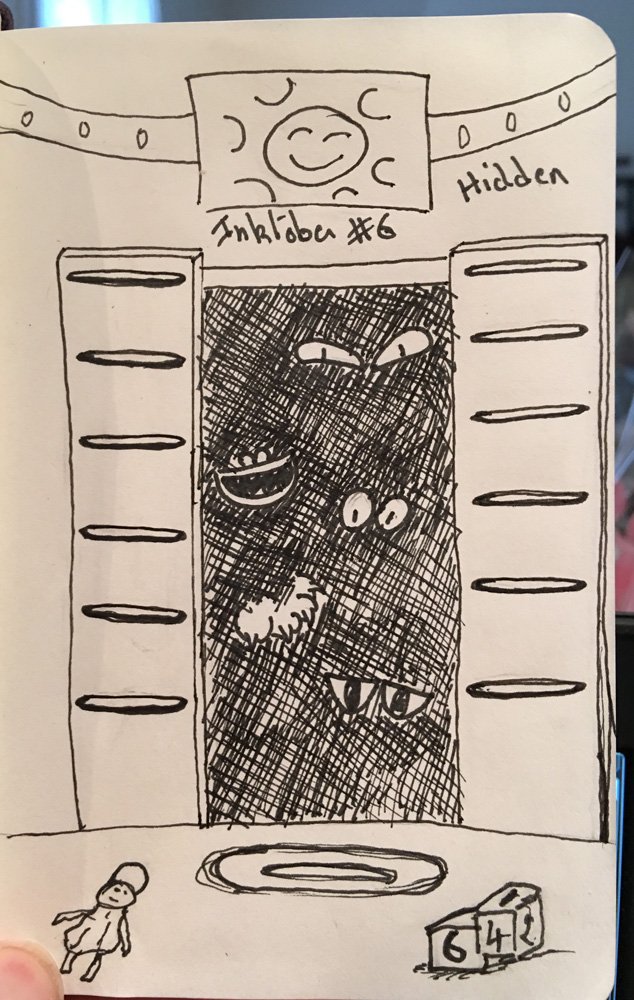 Hidden
Inktober #6
6 4 2